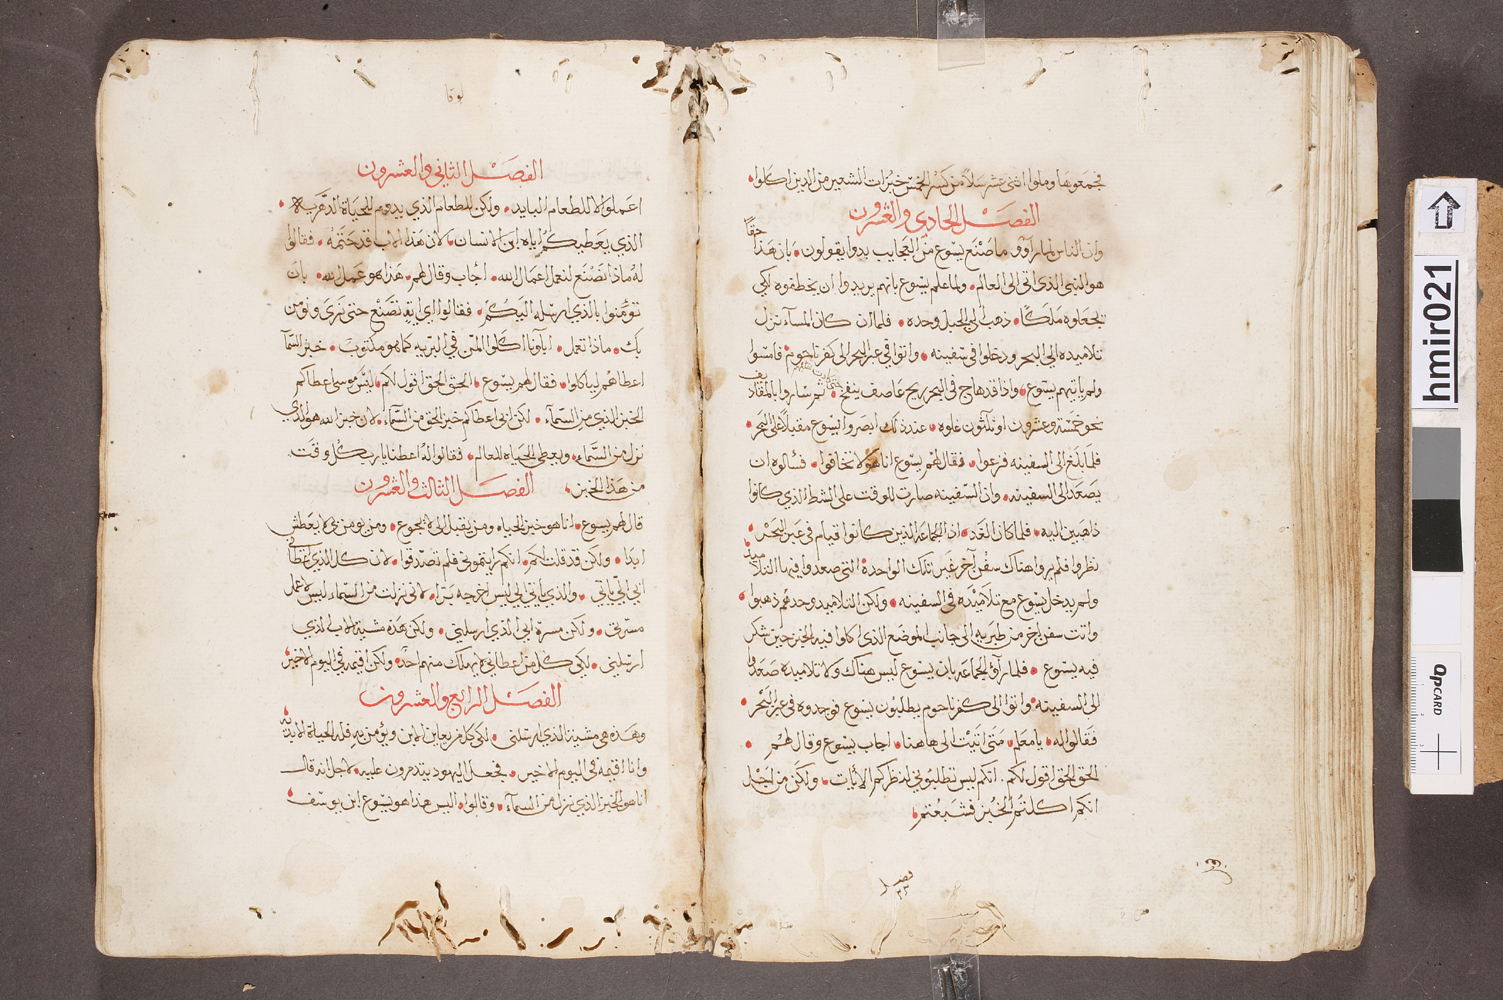 فجمعوها وملوا اثنى عشر سلاً من كسر الخمس خبزات الشعير من الذين اكلوا
الفصل الحادي والعشرون
وان الناس لما راوو ما صنع يسوع من العجايب بدوا يقولون بان هذا حقًا
هو النبي الذي اتى الى العالم ولما علم يسوع بانهم يريدوا ان يخطفوه لكي
يجعلوه ملكًا ذهب الى الجبل وحده فلما ان كان المسآء نزل
تلاميذه الى البحر ودخلوا في سفينه واتوا في عبر البحر الى كفرناحوم فامسوا
ولم ياتيهم يسوع واذا قد هاج في البحر ريح عاصف ينفخ ثم ساروا بالمقاذيف
نحو خمسة وعشرون او ثلثون غلوه عند ذلك ابصروا يسوع مقبلاً على البحر
فلما بلغ الى السفينه فزعوا فقال لهم يسوع انا هو لا تخافوا فسالوه ان
يصعد الى السفينه وان السفينه صارت للوقت على الشط الذي كانوا
ذاهبين اليه فلما كان الغد اذ الجماعه الذين كانوا قيام في عبر البحر
نظروا فلم يروا هناك سفن آخر غير تلك الواحدة التي صعدوا فيها التلاميذ
ولم يدخل يسوع مع تلاميذه في السفينه ولكن التلاميذ وحدهم ذهبوا
واتت سفن اخر من طبريه الى جانب الموضع الذى اكلوا فيه الخبز حين شكر
فيه يسوع فلما راو الجماعه بان يسوع ليس هناك ولا تلاميذه صعدوا
الى السفينه واتوا الى كفرناحوم يطلبون يسوع فوجدوه في عبر البحر
فقالوا له يا معلم متى اتيت الى هاهنا اجاب يسوع وقال لهم
الحق الحق اقول لكم انكم ليس تطلبوني لنظركم الايات ولكن من اجل
انكم اكلتم الخبز فشبعتم
فصل
٢٣
لوقا
الفصل الثاني والعشرون
اعملوا لا للطعام البايد ولكن للطعام الذي يدوم للحياة الدهريه
الذي يعطيكم اياه ابن الانسان لان هذا الاب قد ختمه فقالوا
له ماذا نصنع لنعمل اعمال الله اجاب وقال لهم هذا هو عمل الله بان
تومنوا بالذي ارسله اليكم فقالوا اي ايه تصنع حتى نرى ونومن
بك ماذا تعمل اباونا اكلوا المن في البريه كما هو مكتوب خبز السمآ
اعطاهم لياكلوا فقال لهم يسوع الحق الحق اقول لكم ليس موسى اعطاكم
الخبز الذي من السمآء لكن ابي اعطاكم خبز الحق من السمآء لان خبز الله هو الذي
نزل من السمآء ويعطي الحياه للعالم فقالوا له اعطنا يا رب كل وقت
من هذا الخبز الفصل الثالث والعشرون
قال لهم يسوع انا هو خبز الحياه ومن يقبل الي لا يجوع ومن يومن بي لا يعطش
ابدا ولكن قد قلت لكم انكم رايتموني فلم تصدقوا لان كل الذي اعطاني
ابي الي ياتي والذي ياتي الي ليس اخرجه برا لاني نزلت من السماء ليس لاعمل
مسرتي ولكن مسرة ابي الذي ارسلني ولكن هذه مشية الاب الذي
ارسلني لكي كل من اعطاني لا يهلك منهم احد ولكن اقيمه في اليوم الاخير
الفصل الرابع والعشرون
وهذه هي مشية الذي ارسلني لكي كل من يعاين الابن ويؤمن به فله الحياة الابديه
وانا اقيمه في اليوم الاخير فجعل اليهود يتذمرون عليه لاجل انه قال
انا هو الخبز الذي نزل من السمآء وقالوا اليس هذا هو يسوع ابن يوسف
hmir021
dpCARD